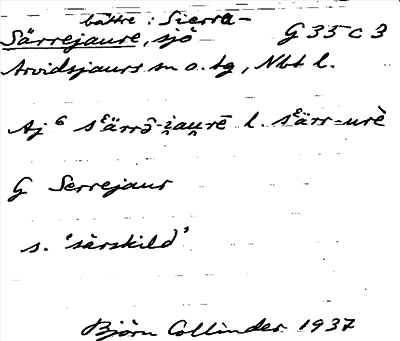 bättre: Sierra-
Särrejaure, sjö G 35 c 3
Arvidsjaurs sn o. tg, Nbt l.
Aj 6 sᵉärrō-i̯au̯rē l. sᵉärr-urè
G Serrejaur
s. 'särskild'
Björn Collinder 1937